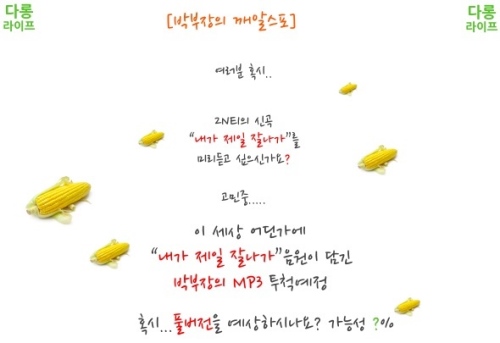 다롱
라이프
[박부장의 깨알스포]
다롱
라이프
여러분 혹시..
2NE1의 신곡
"내가 제일 잘나가"를
미리듣고 싶으신가요?
고민중.....
이 세상 어딘가에
"내가 제일 잘나가"음원이 담긴
박부장의 MP3 투척예정
혹시...풀버전을 예상하시나요? 가능성 ?%